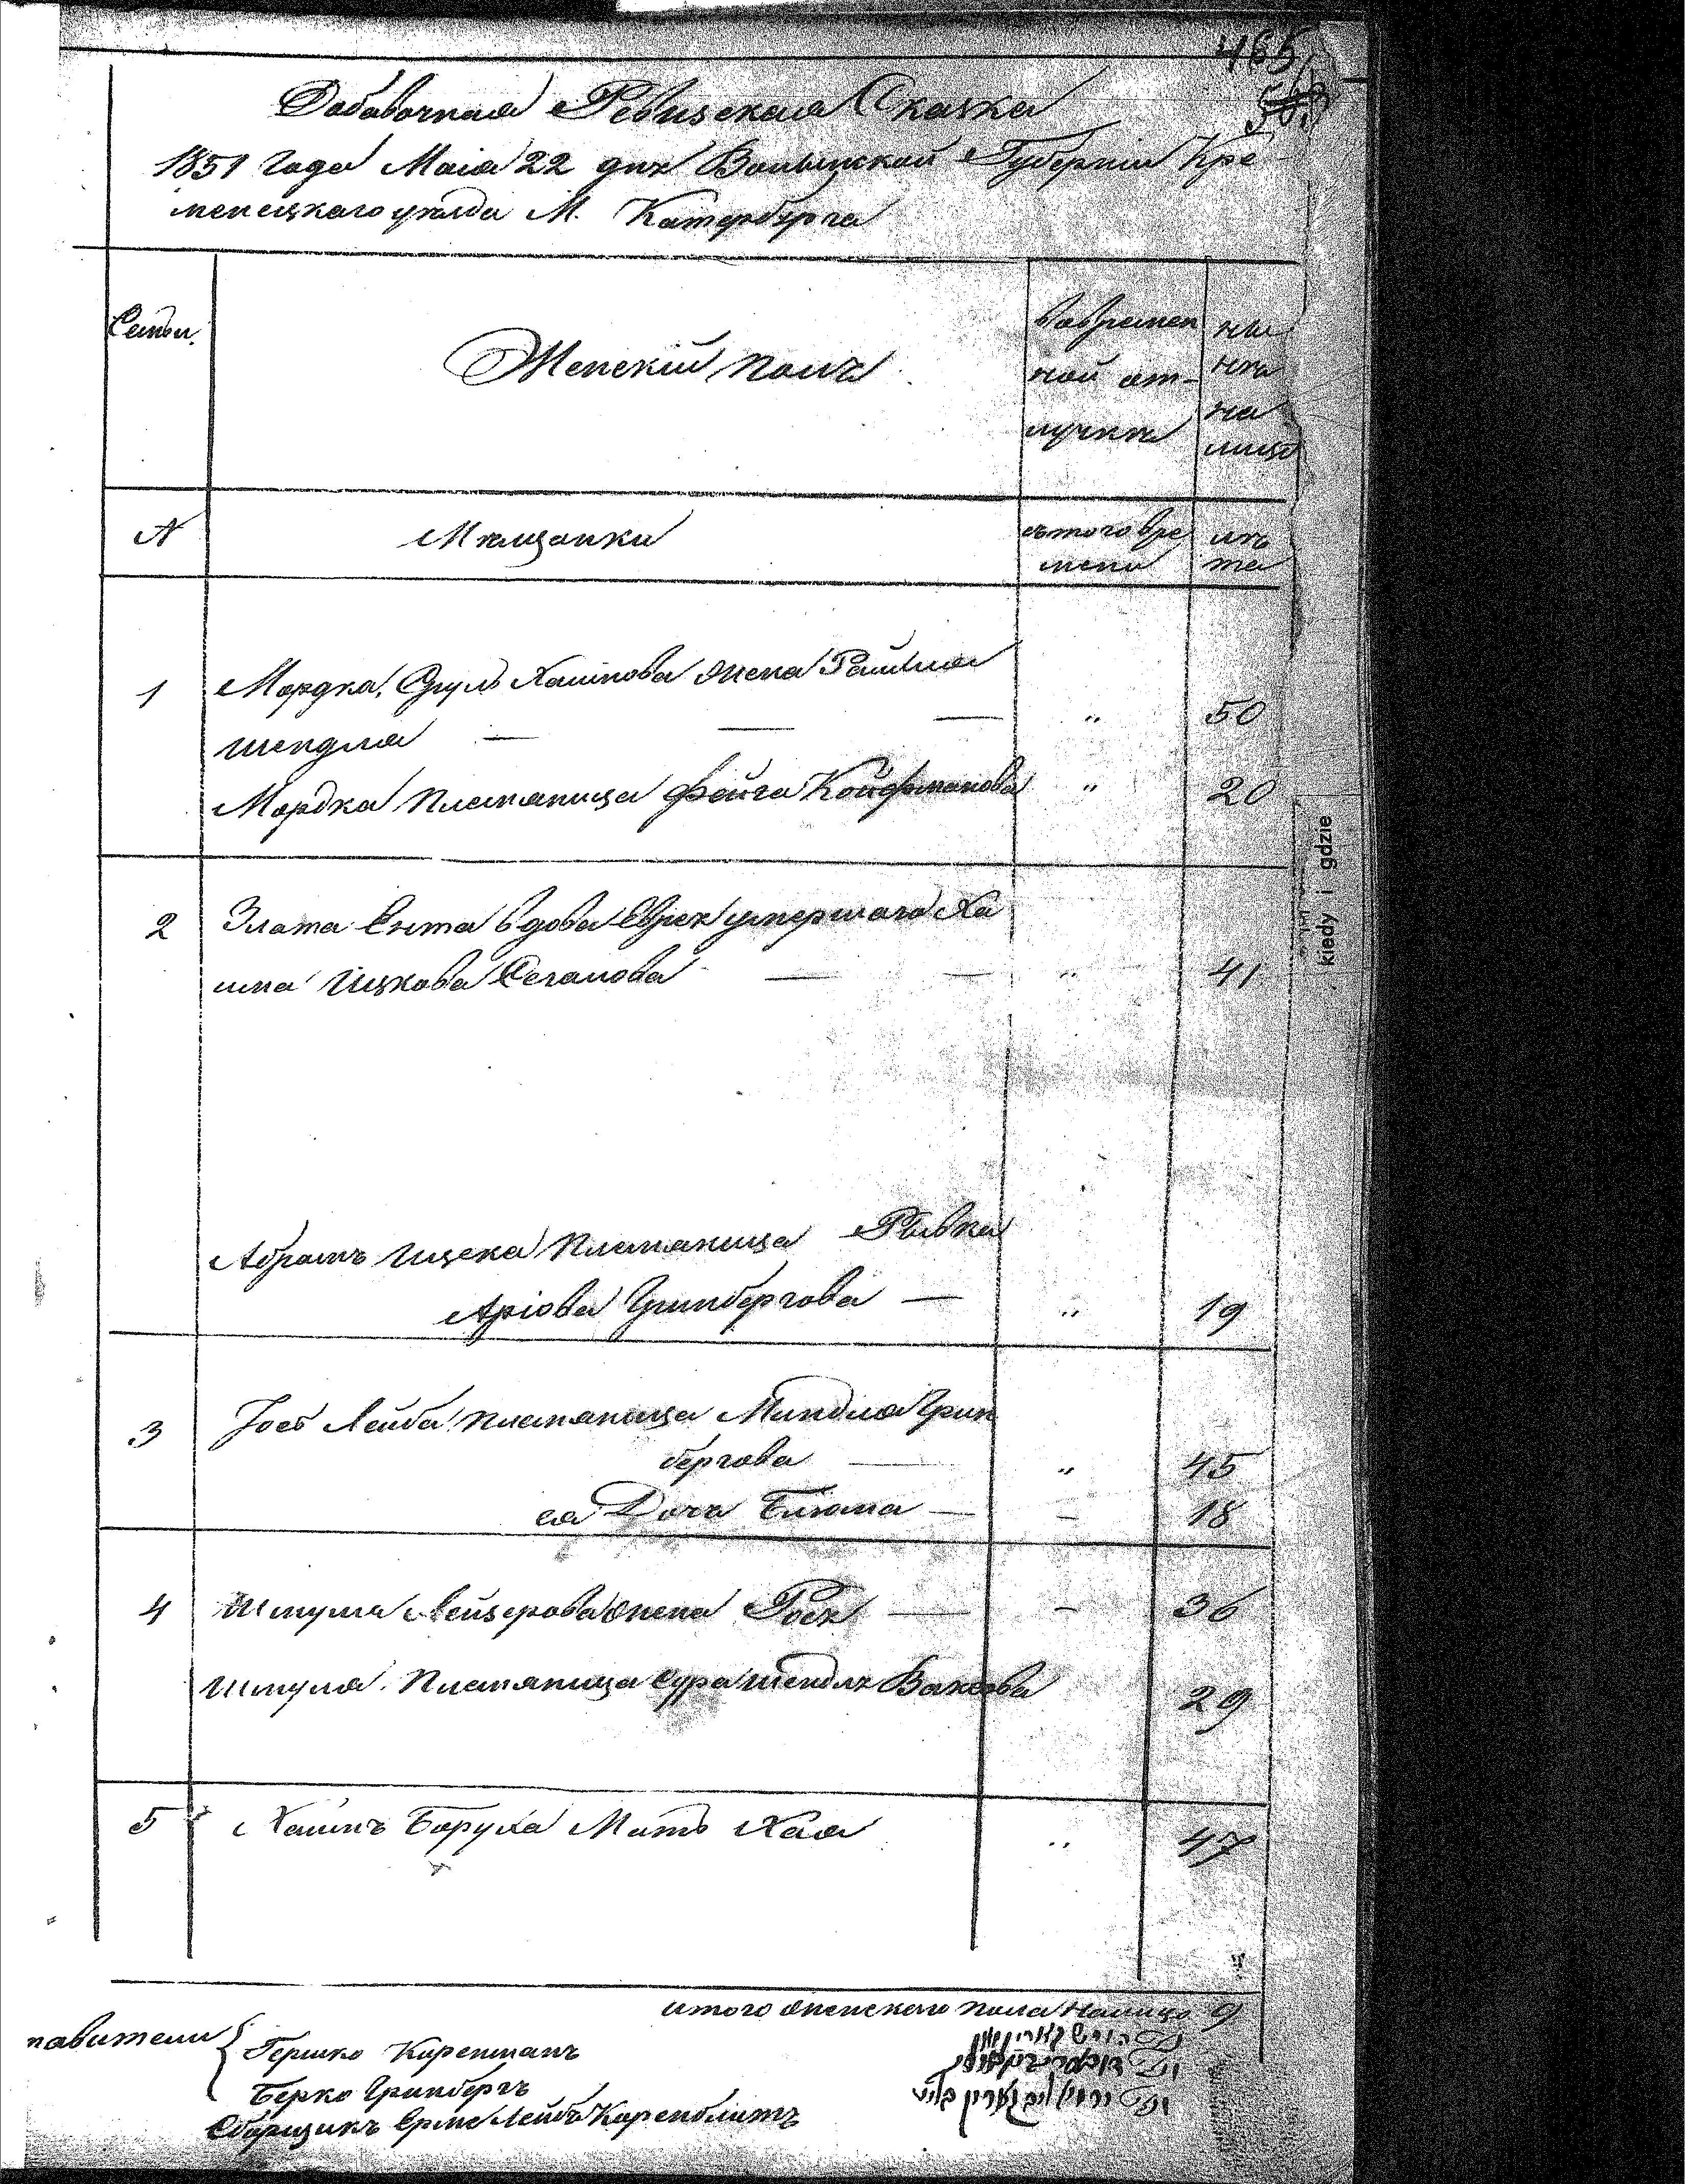 465
Добавочная Ревизская Сказка
1851 года Маія 22 дня Волынской Губерніи Кре-
менецкаго уѣзда М. Катербурга
Семьи
Женскій полъ
вовремен
ной от-
лучкѣ
ны
нѣ
на
лицо
№
Мѣщанки
съ того вре
мени
лѣ
та
1
Мордка Сруль Хаимова жена Райзля
Шендля — — —
„
50
Мордка племяница Фейга Койфманова
„
20
2
Злата Ента вдова Еврея умершаго Ха
има Ицкова Сегалова — —
„
41
Абрамъ Ицека племяница Рывка
Аріова Гринбергова —
„
19
3
Іось Лейба племяница Миндля Грин
бергова —
„
45
ея Дочь Блюма —
—
18
4
Шмуля Лейзерова жена Рося —
—
36
Шмуля племяница Сура Шендля Ваксова
29
5
Хаимъ Боруха Мать Хая
„
47
итого женскаго пола налицо 9
Гершко Коренманъ
Берко Гринбергъ
Сборщикъ Срмс Лейбъ Коренблитъ
kiedy i gdzie